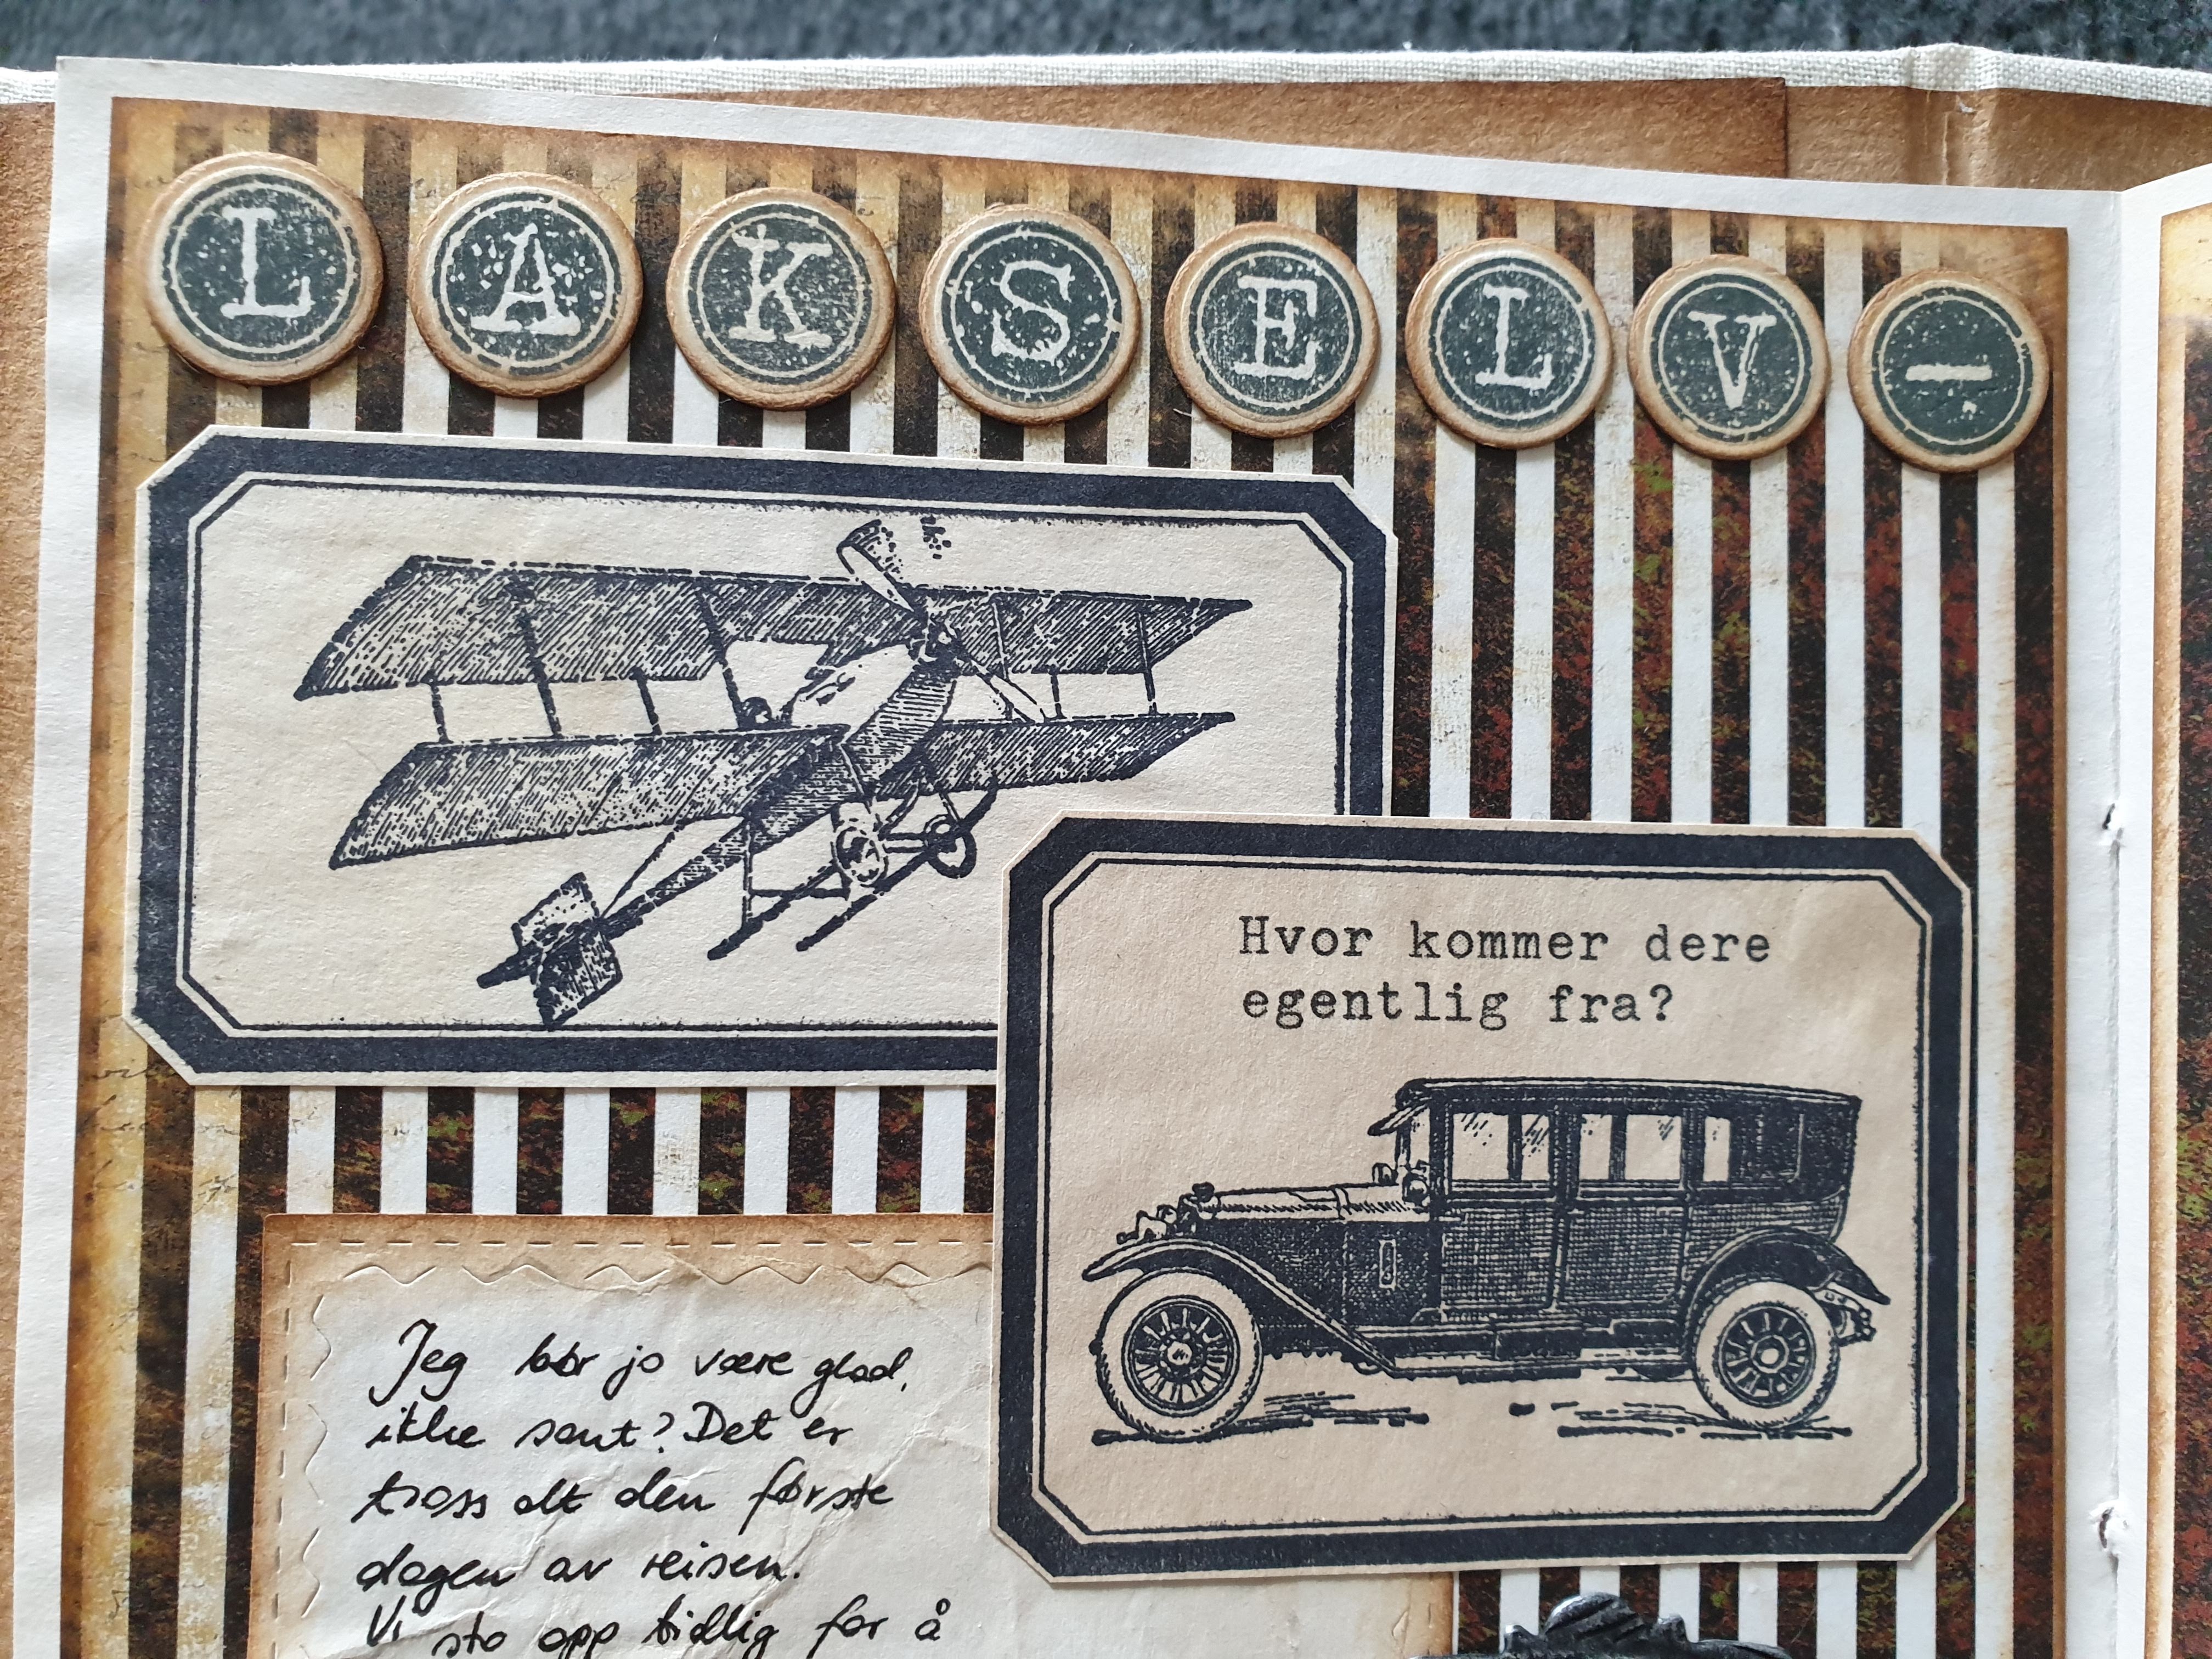 LAKSELV-
Hvor kommer dere
egentlig fra?
Jeg bør jo være glad,
ikke sant? Det er
tross alt den første
dagen av reisen.
Vi sto opp tidlig for å